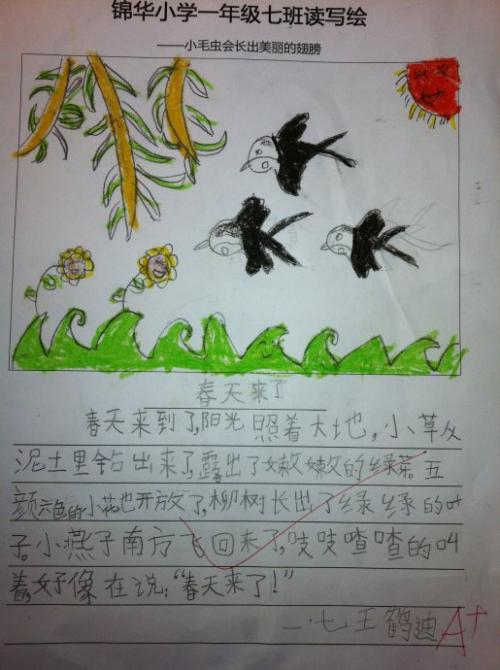 锦华小学一年级七班读写绘
——小毛虫会长出美丽的翅膀
春天来了
春天来到了,阳光照着大地,小草从
泥土里钻出来了,露出了嫩嫩的绿芽。五
颜六色的小花也开放了,柳树长出了绿绿的叶
子。小燕子南方飞回来了,吱吱喳喳的叫
着,好像在说:“春天来了!”
一.七 王鹤迪
A+